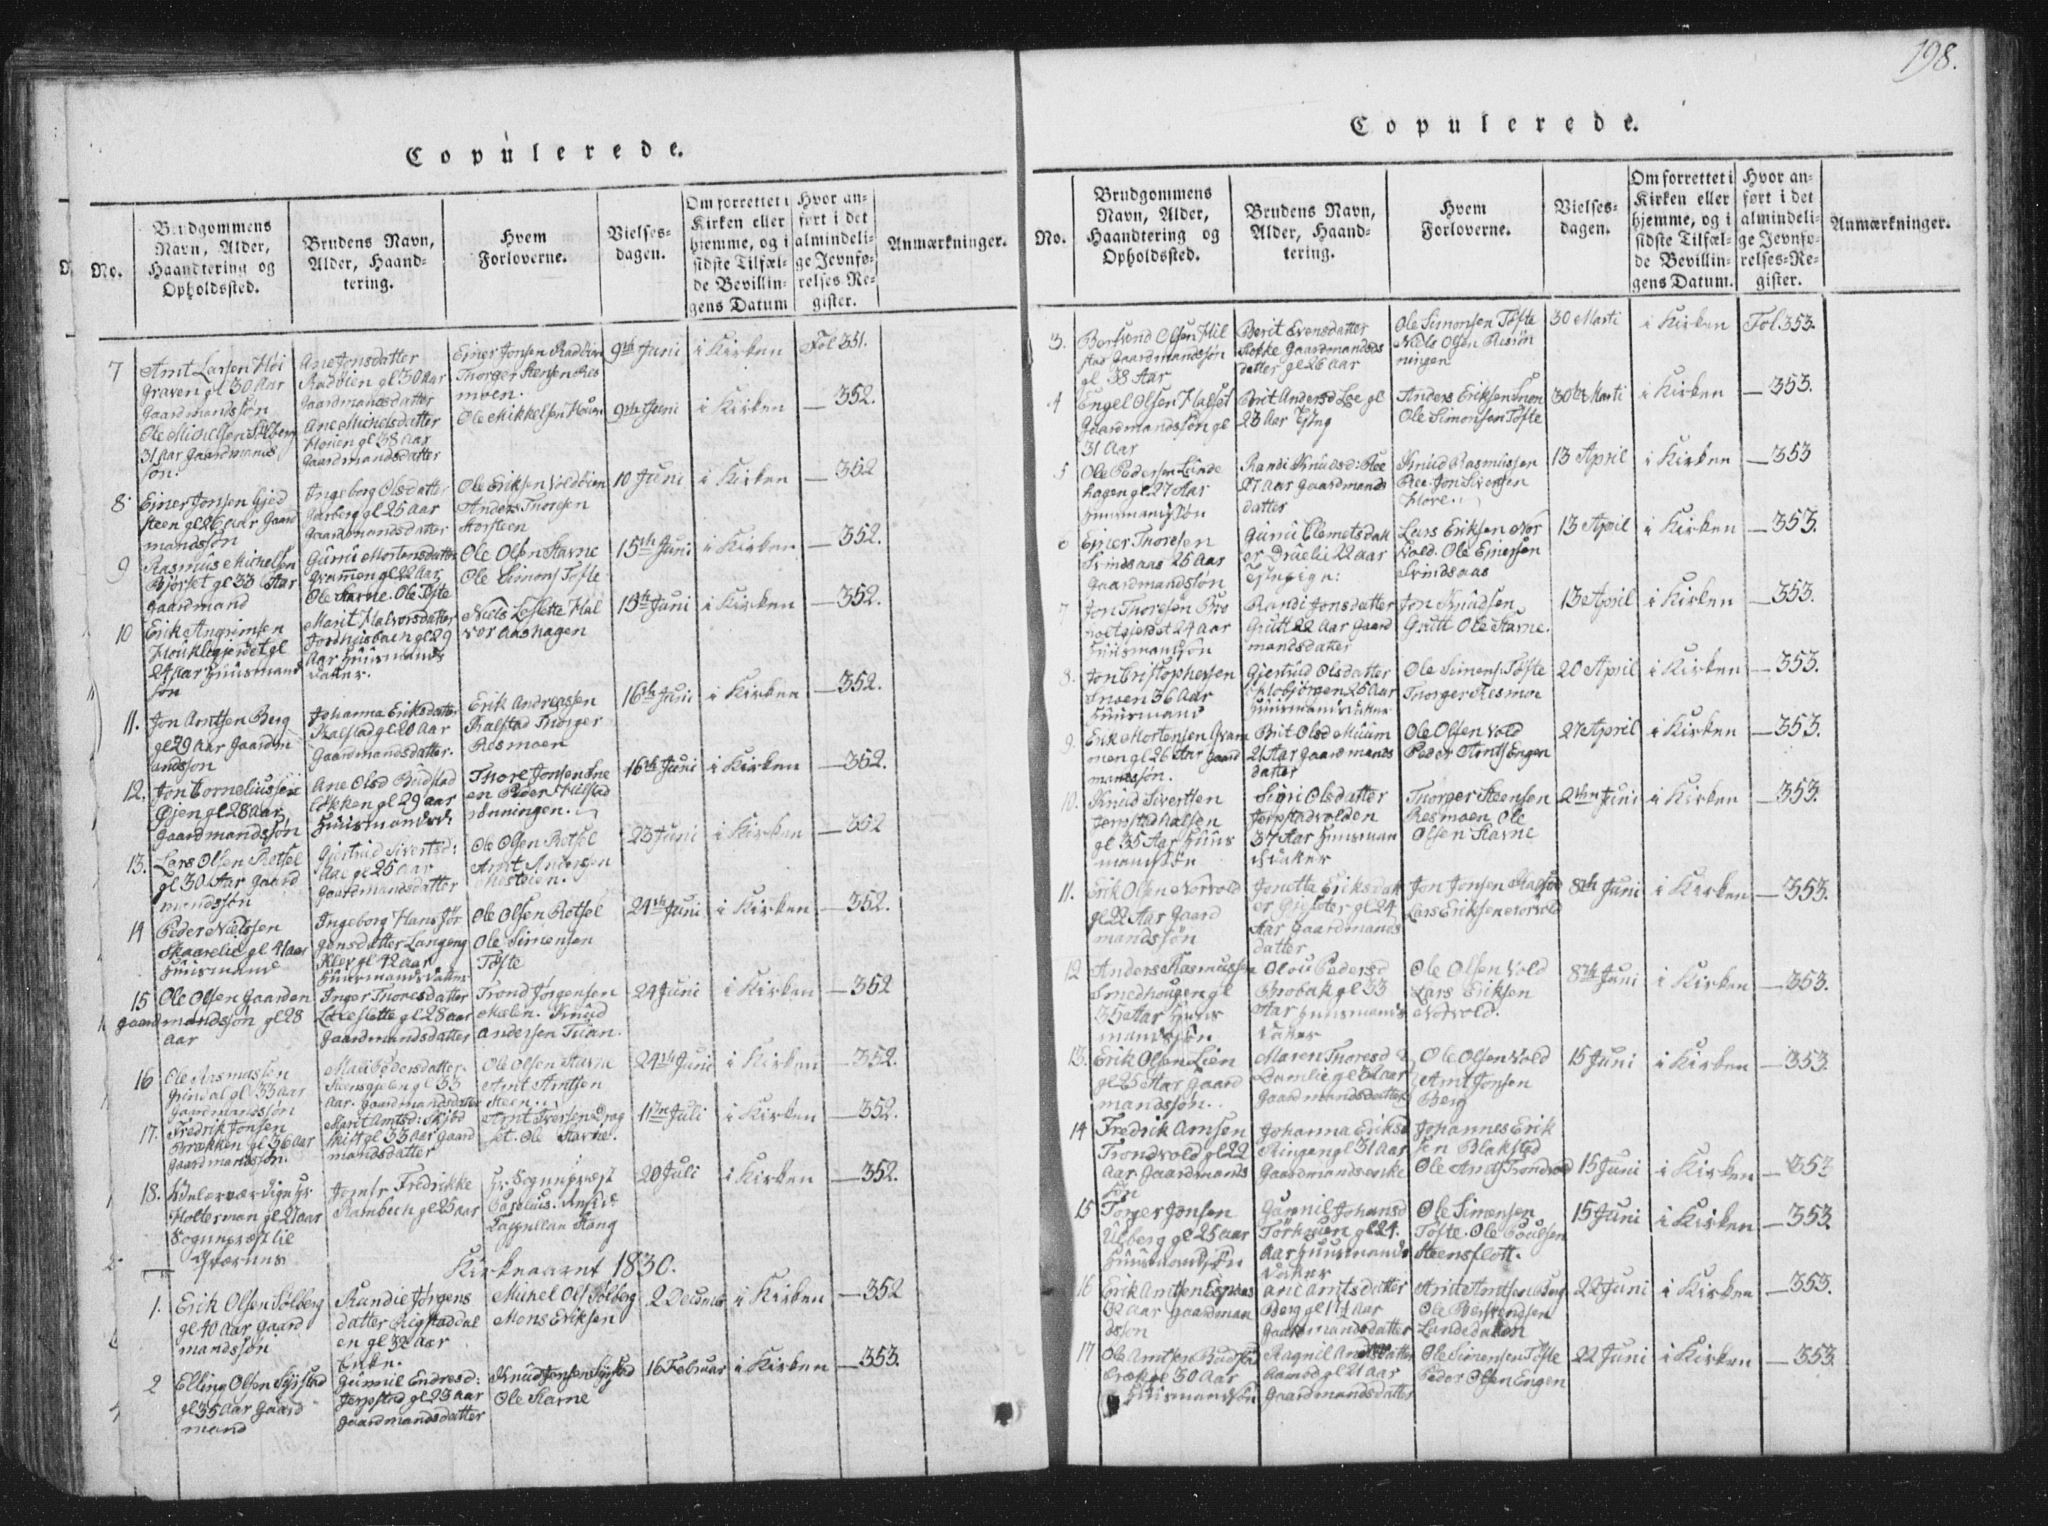 198.
Copulerede.
No.
Brudgommens
Navn, Alder,
Haandtering og
Opholdssted.
Brudens Navn,
Alder, Haand-
tering.
Hvem
Forloverne.
Vielses-
dagen.
Om forrettet i
Kirken eller
hjemme, og i
sidste Tilfæl-
de Bevillin-
gens Datum
Hvor an-
ført i det
almindeli-
ge Jevnfø-
relses-Re-
gister.
Anmærkninger.
7
Arnt Larsen Høi
graven gl 30 Aar
Gaardmandssøn
Ane Jonsdatter
gl 30 Aar
Gaardmandsdatter
Einer Jonsen
Thorger Stensen Res
moen.
9de Juni
i Kirken
Fol 351.
Ole Michelsen Solberg
31 Aar Gaardmands
søn.
Ane Michelsdatter
Houen gl 38 Aar
Gaardmandsdatter
Ole Mikkelsen Houen
9de Juni
i Kirken
— 352.
8
Einer Jonsen Gjed
steen gl 26 Aar Gaard
mandssøn
Ingeborg Olsdatter
Garberg gl 25 Aar
Gaardmandsdatter
Ole Eriksen Voldöien
Anders Thoresen
10 Juni
i Kirken
— 352
9
Rasmus Michelsen
Bjørset gl 33 Aar
Gaardmand
Guru Mortensdatter
Grammen gl 22 Aar
Ole Starne. Ole Tofte
Ole Olsen Starne
Ole Simons Tofte
15th Juni
i Kirken
— 352.
10
Erik Angrimsen
gl
24 Aar Huusmand
søn
Marit Halvorsdatter
gl 29
Aar Huusmands
datter.
Niels Leslette Hal
vor Aashagen
15th Juni
i Kirken
— 352.
11.
Jon Arntsen Berg
gl 29 Aar Gaardm
andssøn
Johanna Eriksdatter
Kalstad gl 20 Aar
Gaardmandsdatter.
Erik Andreassen
Kalstad Thorger
Resmoen
16th Juni
i Kirken
— 352.
12.
Jon Corneliussen
Øjen gl 28 Aar,
Gaardmandssøn
Ane Olsd
gl 29 Aar
Huusmandsd:
Thore Jonsen
16th Juni
i Kirken
— 352.
13.
Lars Olsen Rotsel
gl 30 Aar Gaard
mandssøn
Gjertrud Sivertsd:
Aae gl 25 Aar
Gaardmandsdatter
Ole Olsen Rotsel
Arnt Andersen
23 Juni
i Kirken
— 352
14
Peder Nielssen
Skaarelie gl 41 Aar
Huusmand
Ingeborg Hans Jör
gensdatter Langeng
Klev gl 42 Aar
Huusmandsdatter
Ole Olsen Rotsel
Ole Simensen
Tofte
24th Juni
i Kirken
— 352.
15
Ole Olsen Gaarden
gaardmandssøn gl 28
Aar
Inger Thoresdatter
gl 28 Aar
Gaardmandsdatter
Trond Jørgensen
Mælen. Knud
Andersen Tuan.
24 Juni
i Kirken
— 352
16
Ole Rasmussen
Grindal gl 33 Aar
Gaardmandssøn
Mari Pedersdatter
gl 33
Aar. Gaardmandsdatter
Ole Olsen Starne
Arnt Arntsen
Steen
24th Juni
i Kirken
— 352.
17.
Fredrik Jonsen
Brækken gl 36 Aar
Gaardmandssøn.
Marit Arntsd:
gl 33 Aar Gaard
mandsdatter
Arnt Iversen Drag
set. Ole Starne.
11 Juli
i Kirken
— 352.
18.
Velærværdige Hr
Holterman gl 27 Aar
Sognepræst til
Jomfr. Fredrikke
Rambech gl 25 Aar
Hr. Sognepræst
20 Juli
i Kirken
— 352.
Kirkeaaret 1830.
1.
Erik Olsen Solberg
gl 40 Aar Gaard
mandssøn
Randie Jørgens
datter Rigstaddal
en gl 32 Aar
Enke.
Michel Ols Solberg
Mons Eriksen
2 December
i Kirken
— 352
2
Elling Olsen Syrstad
gl 35 Aar Gaard
mand
Gunnil Endresd:
Jerpstad gl 23 Aar
Gaardmandsdatter
Knud Jonsen Syrstad
Ole Starne
16 Februar
i Kirken
— 353.
Copulerede.
No.
Brudgommens
Navn, Alder,
Haandtering og
Opholdssted.
Brudens Navn,
Alder, Haand-
tering.
Hvem
Forloverne.
Vielses-
dagen.
Om forrettet i
Kirken eller
hjemme, og i
sidste Tilfæl-
de Bevillin-
gens Datum.
Hvor an-
ført i det
almindeli-
ge Jevnfø-
relses-Re-
gister.
Anmærkninger.
3.
Bertrand Olsen Hil
stad Gaardmandssøn
gl 38 Aar
Berit Evensdatter
Stokke Gaardmandsds
datter gl 26 Aar
Ole Simonsen Tofte
Niels Olsen Risøn
ningen
30 Marti
i Kirken
Fol. 353.
4
Engel Olsen Halset
Gaardmandssøn gl
31 Aar
Brit Andersd Loe gl
23 Aar
Anders Eriksen
Ole Simonsen Tofte
30te Marti
i Kirken
— 353.
5
Ole Pedersen Lunde
hagen gl 27 Aar
Huusmandssøn
Randi Knudsd: Ree
27 Aar Gaardmands
datter
Knud Rasmussen
Ree. Jon Sivertsen
Hove.
13 April
i Kirken
— 353
6
Einer Thoresen
Svindsaas 25 Aar
Gaardmandssøn
Guru Clemetsdatt
er Druelie 22 Aar
Lars Eriksen Nor
vold. Ole Einersen
Svindsaas
13 April
i Kirken
— 353.
7
Jon Thoresen Bro
holtgjerdet 24 Aar
Huusmandssøn
Randi Jonsdatter
Grutt 22 Aar Gaard
mandsdatter
Jon Knudsen
Grutt Ole Starne.
13 April
i Kirken
— 353.
8.
Jon Cristophersen
Smoen 36 Aar
Huusmand
Gjertrud Olsdatter
25 Aar
Huusmandsdatter
Ole Simens. Tofte
Thorger Resmoe
20 April
i Kirken
— 353.
9.
Erik Mortensen Gram
men gl 26 Aar Gaard
mandssøn.
Brit Olsd Muum
21 Aar Gaardmands
datter
Ole Olsen Vold
Peder Arntsengen
27 April
i Kirken
— 353.
10.
Knud Sivertsen
Jerpstadhalsen
gl 35 Aar Huus
mandssøn
Siri Olsdatter
Jerpstadvolden
37 Aar Huusman
datter
Thorger Steensen
Resmoen Ole
Olsen Starne
2den Juni
i Kirken
— 353.
11.
Erik Olsen Norvold
gl 22 Aar Gaard
mandssøn
Jonetta Eriksdatt
er gl 24
Aar Gaardmands
datter
Jon Jonsen
Lars Eriksen Norvold
8th Juni
i Kirken
— 353.
12
Anders Rasmussen
Smedhougen gl
35 Aar Huus
mandssøn
Olou Pedersd
Brobak gl 33
Aar Huusmands
datter
Ole Olsen Vold
Lars Eriksen
Norvold.
8th Juni
i Kirken
— 353.
13.
Erik Olsen Lien
gl 25 Aar Gaard
mandssøn.
Maren Thoresd
Damlie gl 32 Aar
Gaardmandsdatter
Ole Olsen Vold
Arnt Jonsen
Berg
15 Juni
i Kirken
— 353.
14
Fredrik Arnsen
Trondvold gl 22
Aar Gaardmands
søn
Johanna Eriksd
Ringen gl 31 Aar
Gaardmandsenke
Johannes Erik
sen Blakstad
Ole Arnts Trondvold
15 Juni
i Kirken
— 353
15
Torger Jonsen
Ulberg gl 25 Aar
Huusmandssøn
Gunnil Johansd
gl 24
Aar Huusmands
datter
Ole Simensen
Tofte. Ole Poulsen
Steensflott.
15 Juni
i Kirken
— 353.
16
Erik Arntsen Espaas
32 Aar Gaardman
dssøn
Ane Arntsdatter
Berg gl 17½ Aar
Gaardmandsdatter
Arnt Arntsen Berg
Ole Bertrandsen
22 Juni
i Kirken
— 353.
17
Ole Arntsen
gl 30 Aar
Huusmandssøn
Ragnil Arntsdatter
gl 21 Aar
Gaardmandsdatter
Ole Simensen Tofte
Peder Olsen Engen
22 Juni
i Kirken
— 353.